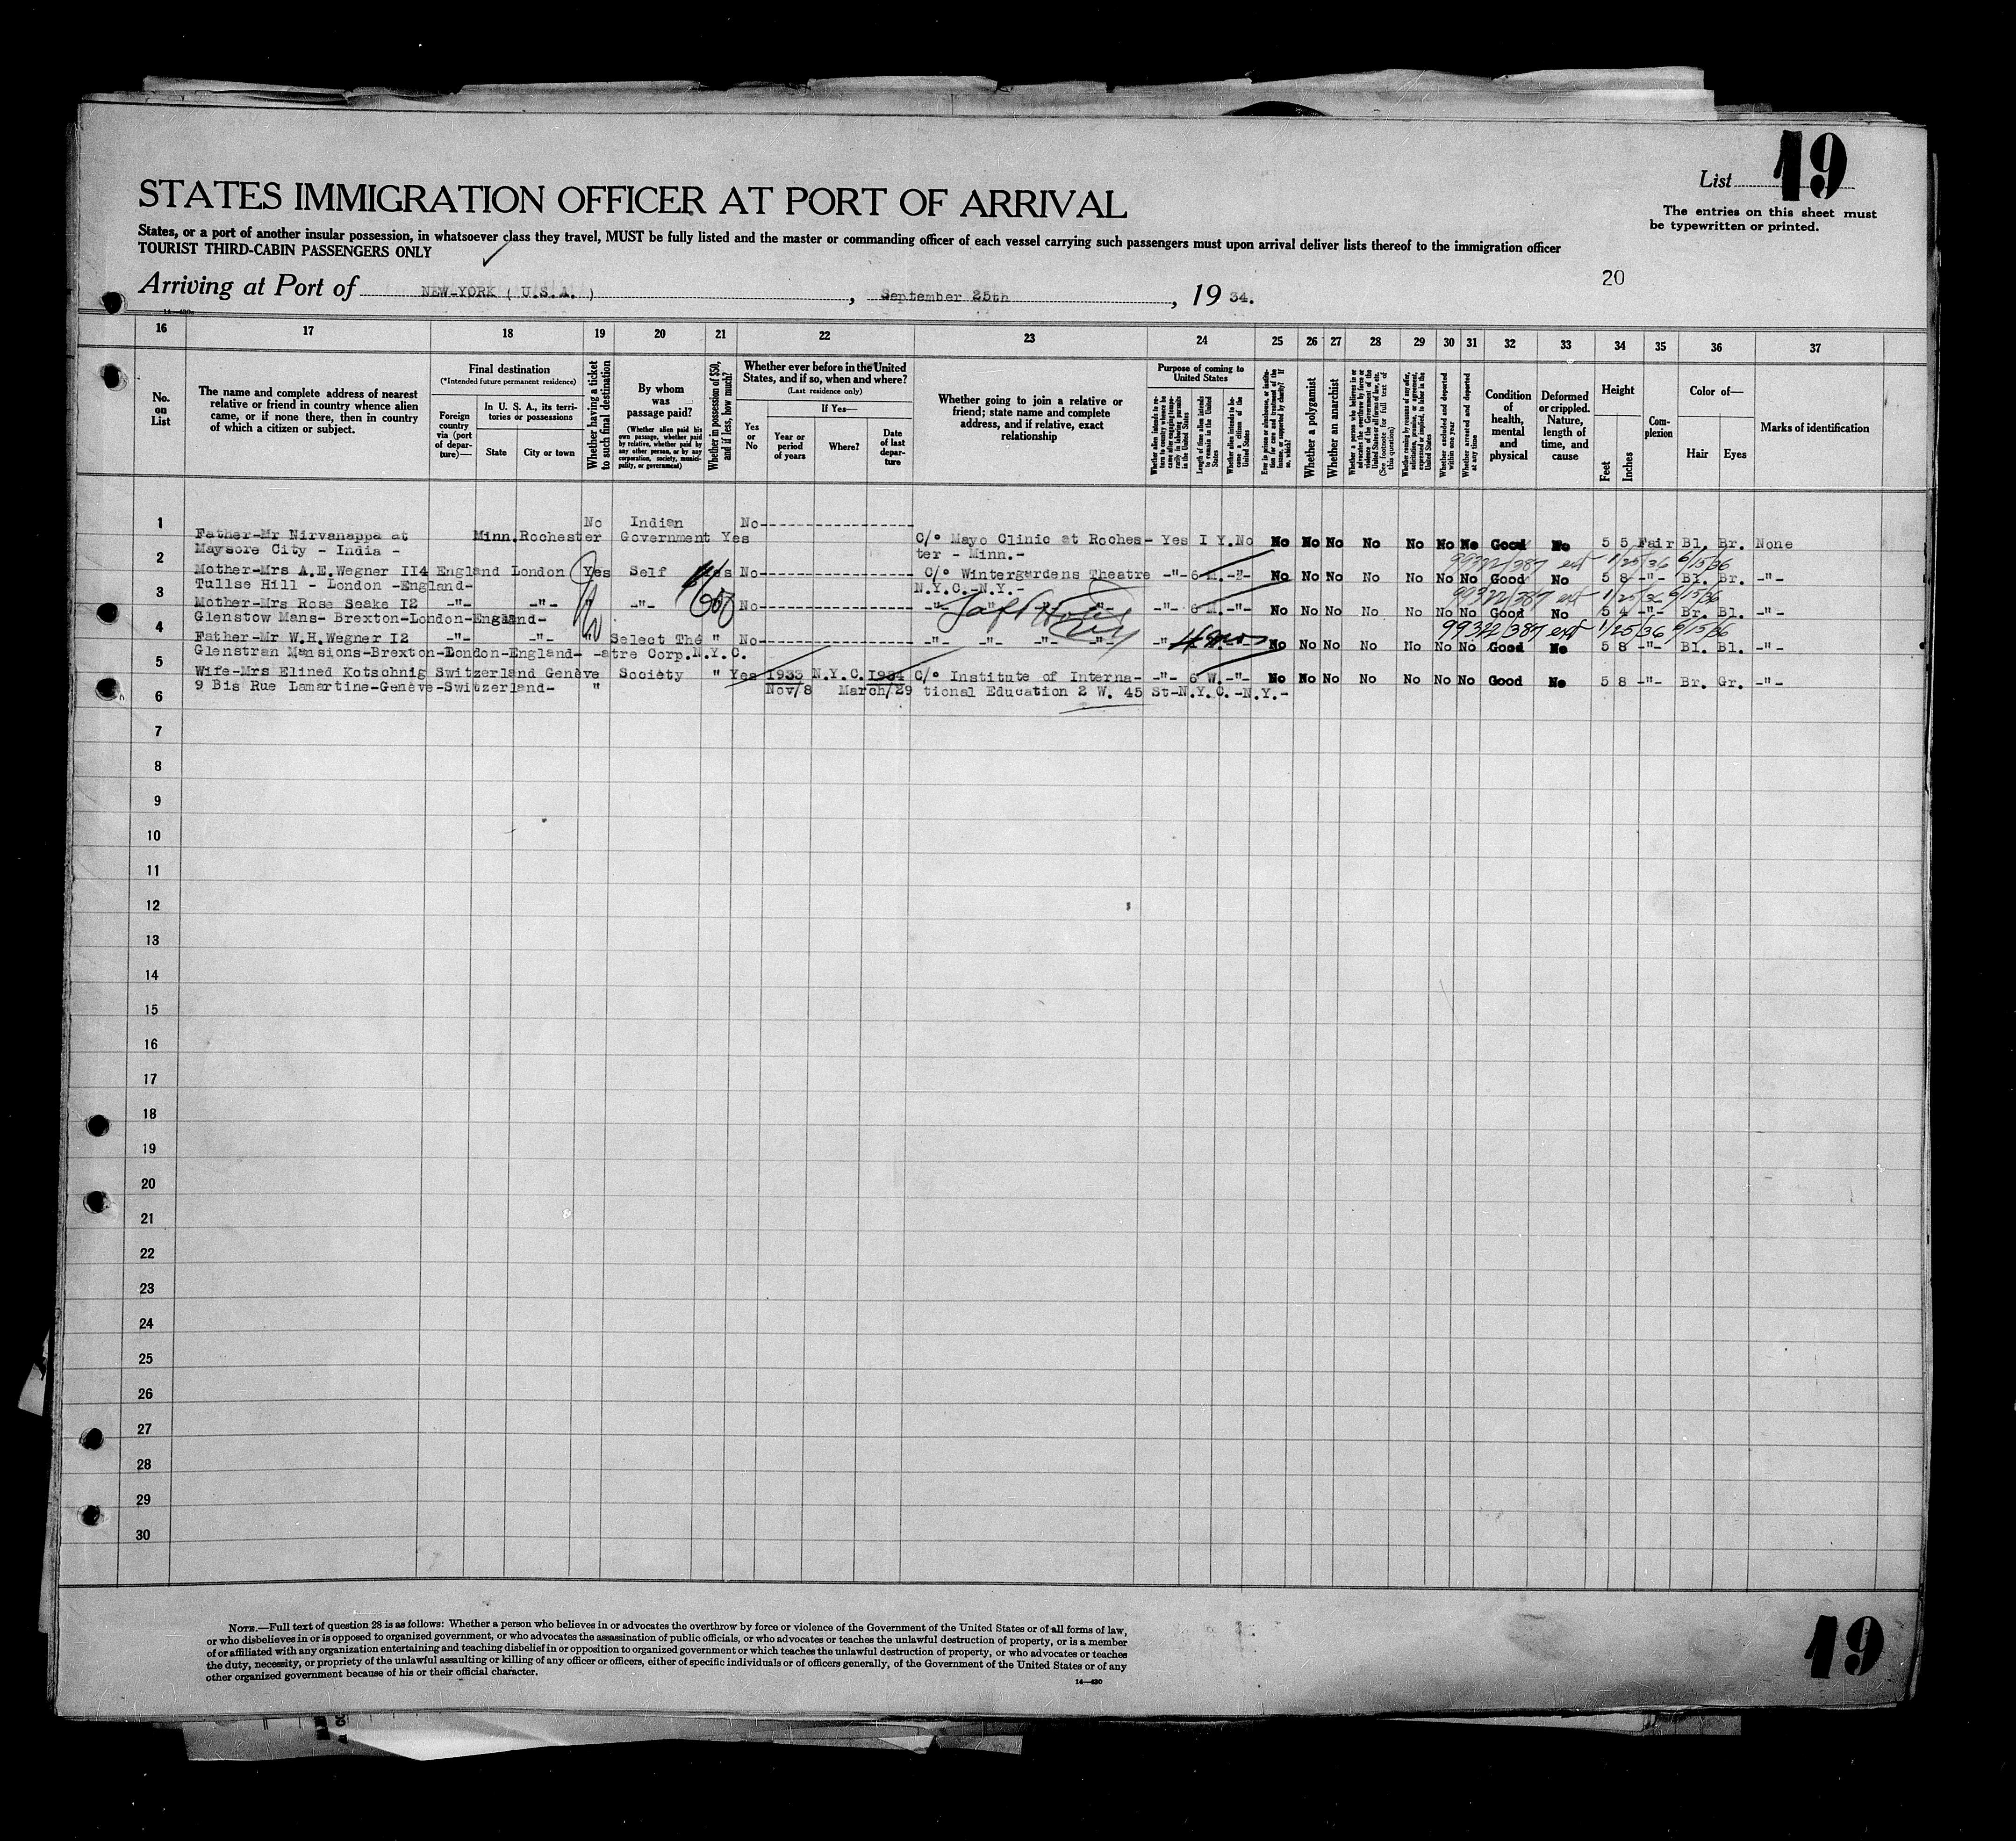 List 19
STATES IMMIGRATION OFFICER AT PORT OF ARRIVAL
The entries on this sheet must
be typewritten or printed.
States, or a port of another insular possession, in whatsoever class they travel, MUST be fully listed and the master or commanding officer of each vessel carrying such passengers must upon arrival deliver lists thereof to the immigration officer
TOURIST THIRD-CABIN PASSENGERS ONLY
20
Arriving at Port of NEW-YORK ( U.S.A. ) , September 25th , 19 34.
16 17 18 19 20 21 22 23 24 25 26 27 28 29 30 31 32 33 34 35 36 37
No. on List
The name and complete address of nearest relative or friend in country whence alien came, or if none there, then in country of which a citizen or subject.
Final destination
(*Intended future permanent residence)
Foreign country via (port of departure)—
In U. S. A., its territories or possessions
State
City or town
Whether having a ticket to such final destination
By whom was passage paid?
(Whether alien paid his own passage, whether paid by relative, whether paid by any other person, or by any corporation, society, municipality, or government)
Whether in possession of $50, and if less, how much?
Whether ever before in the United States, and if so, when and where?
(Last residence only)
Yes or No
If Yes—
Year or period of years
Where?
Date of last departure
Whether going to join a relative or friend; state name and complete address, and if relative, exact relationship
Purpose of coming to United States
Length of time alien intends to remain in the United States
Whether alien intends to become a citizen of the United States
Whether a polygamist
Whether an anarchist
Whether excluded and deported within one year
Whether arrested and deported at any time
Condition of health, mental and physical
Deformed or crippled. Nature, length of time, and cause
Height
Feet
Inches
Complexion
Color of—
Hair
Eyes
Marks of identification
1 No Indian No
Father-Mr Nirvanappa at Minn. Rochester Government Yes C/o Mayo Clinic at Roches- Yes I Y. No No No No No No No No Good No 5 5 Fair Bl. Br. None
Maysore City - India - ter - Minn.-
2 99322/387 ext 1/25/36 6/15/36
Mother-Mrs A.E.Wegner II4 England London Yes Self Yes No C/o Wintergardens Theatre -"- 6 M. -"- No No No No No No No Good No 5 8 -"- Bl. Br. -"-
Tullse Hill - London -England- N.Y.C.-N.Y.-
3 99322/387 ext 1/25/36 6/15/36
Mother-Mrs Rose Seake I2 -"- -"- " -"- No -"- -"- -"- -"- -"- 6 M. -"- No No No No No No No Good No 5 4 -"- Br. Bl. -"-
Taft Hotel
NY
Glenstow Mans- Brexton-London-England-
4 99322/387 ext 1/25/36 6/15/36
Father-Mr W.H.Wegner I2 -"- -"- " Select The " No -"- -"- -"- -"- -"- 4 mos No No No No No No No Good No 5 8 -"- Bl. Bl. -"-
Glenstran Mansions-Brexton-London-England- -atre Corp.N.Y.C.
5
Wife-Mrs Elined Kotschnig Switzerland Genève Society " Yes 1933 N.Y.C. 1934 C/o Institute of Interna- -"- 6 W. -"- No No No No No No No Good No 5 8 -"- Br. Gr. -"-
9 Bis Rue Lamartine-Genève-Switzerland- " Nov/8 March/29 tional Education 2 W. 45 St-N.Y.C.-N.Y.-
6
7
8
9
10
11
12
13
14
15
16
17
18
19
20
21
22
23
24
25
26
27
28
29
30
NOTE.—Full text of question 28 is as follows: Whether a person who believes in or advocates the overthrow by force or violence of the Government of the United States or of all forms of law,
or who disbelieves in or is opposed to organized government, or who advocates the assassination of public officials, or who advocates or teaches the unlawful destruction of property, or is a member
of or affiliated with any organization entertaining and teaching disbelief in or opposition to organized government or which teaches the unlawful destruction of property, or who advocates or teaches
the duty, necessity, or propriety of the unlawful assaulting or killing of any officer or officers, either of specific individuals or of officers generally, of the Government of the United States or of any
other organized government because of his or their official character.
14—430
19